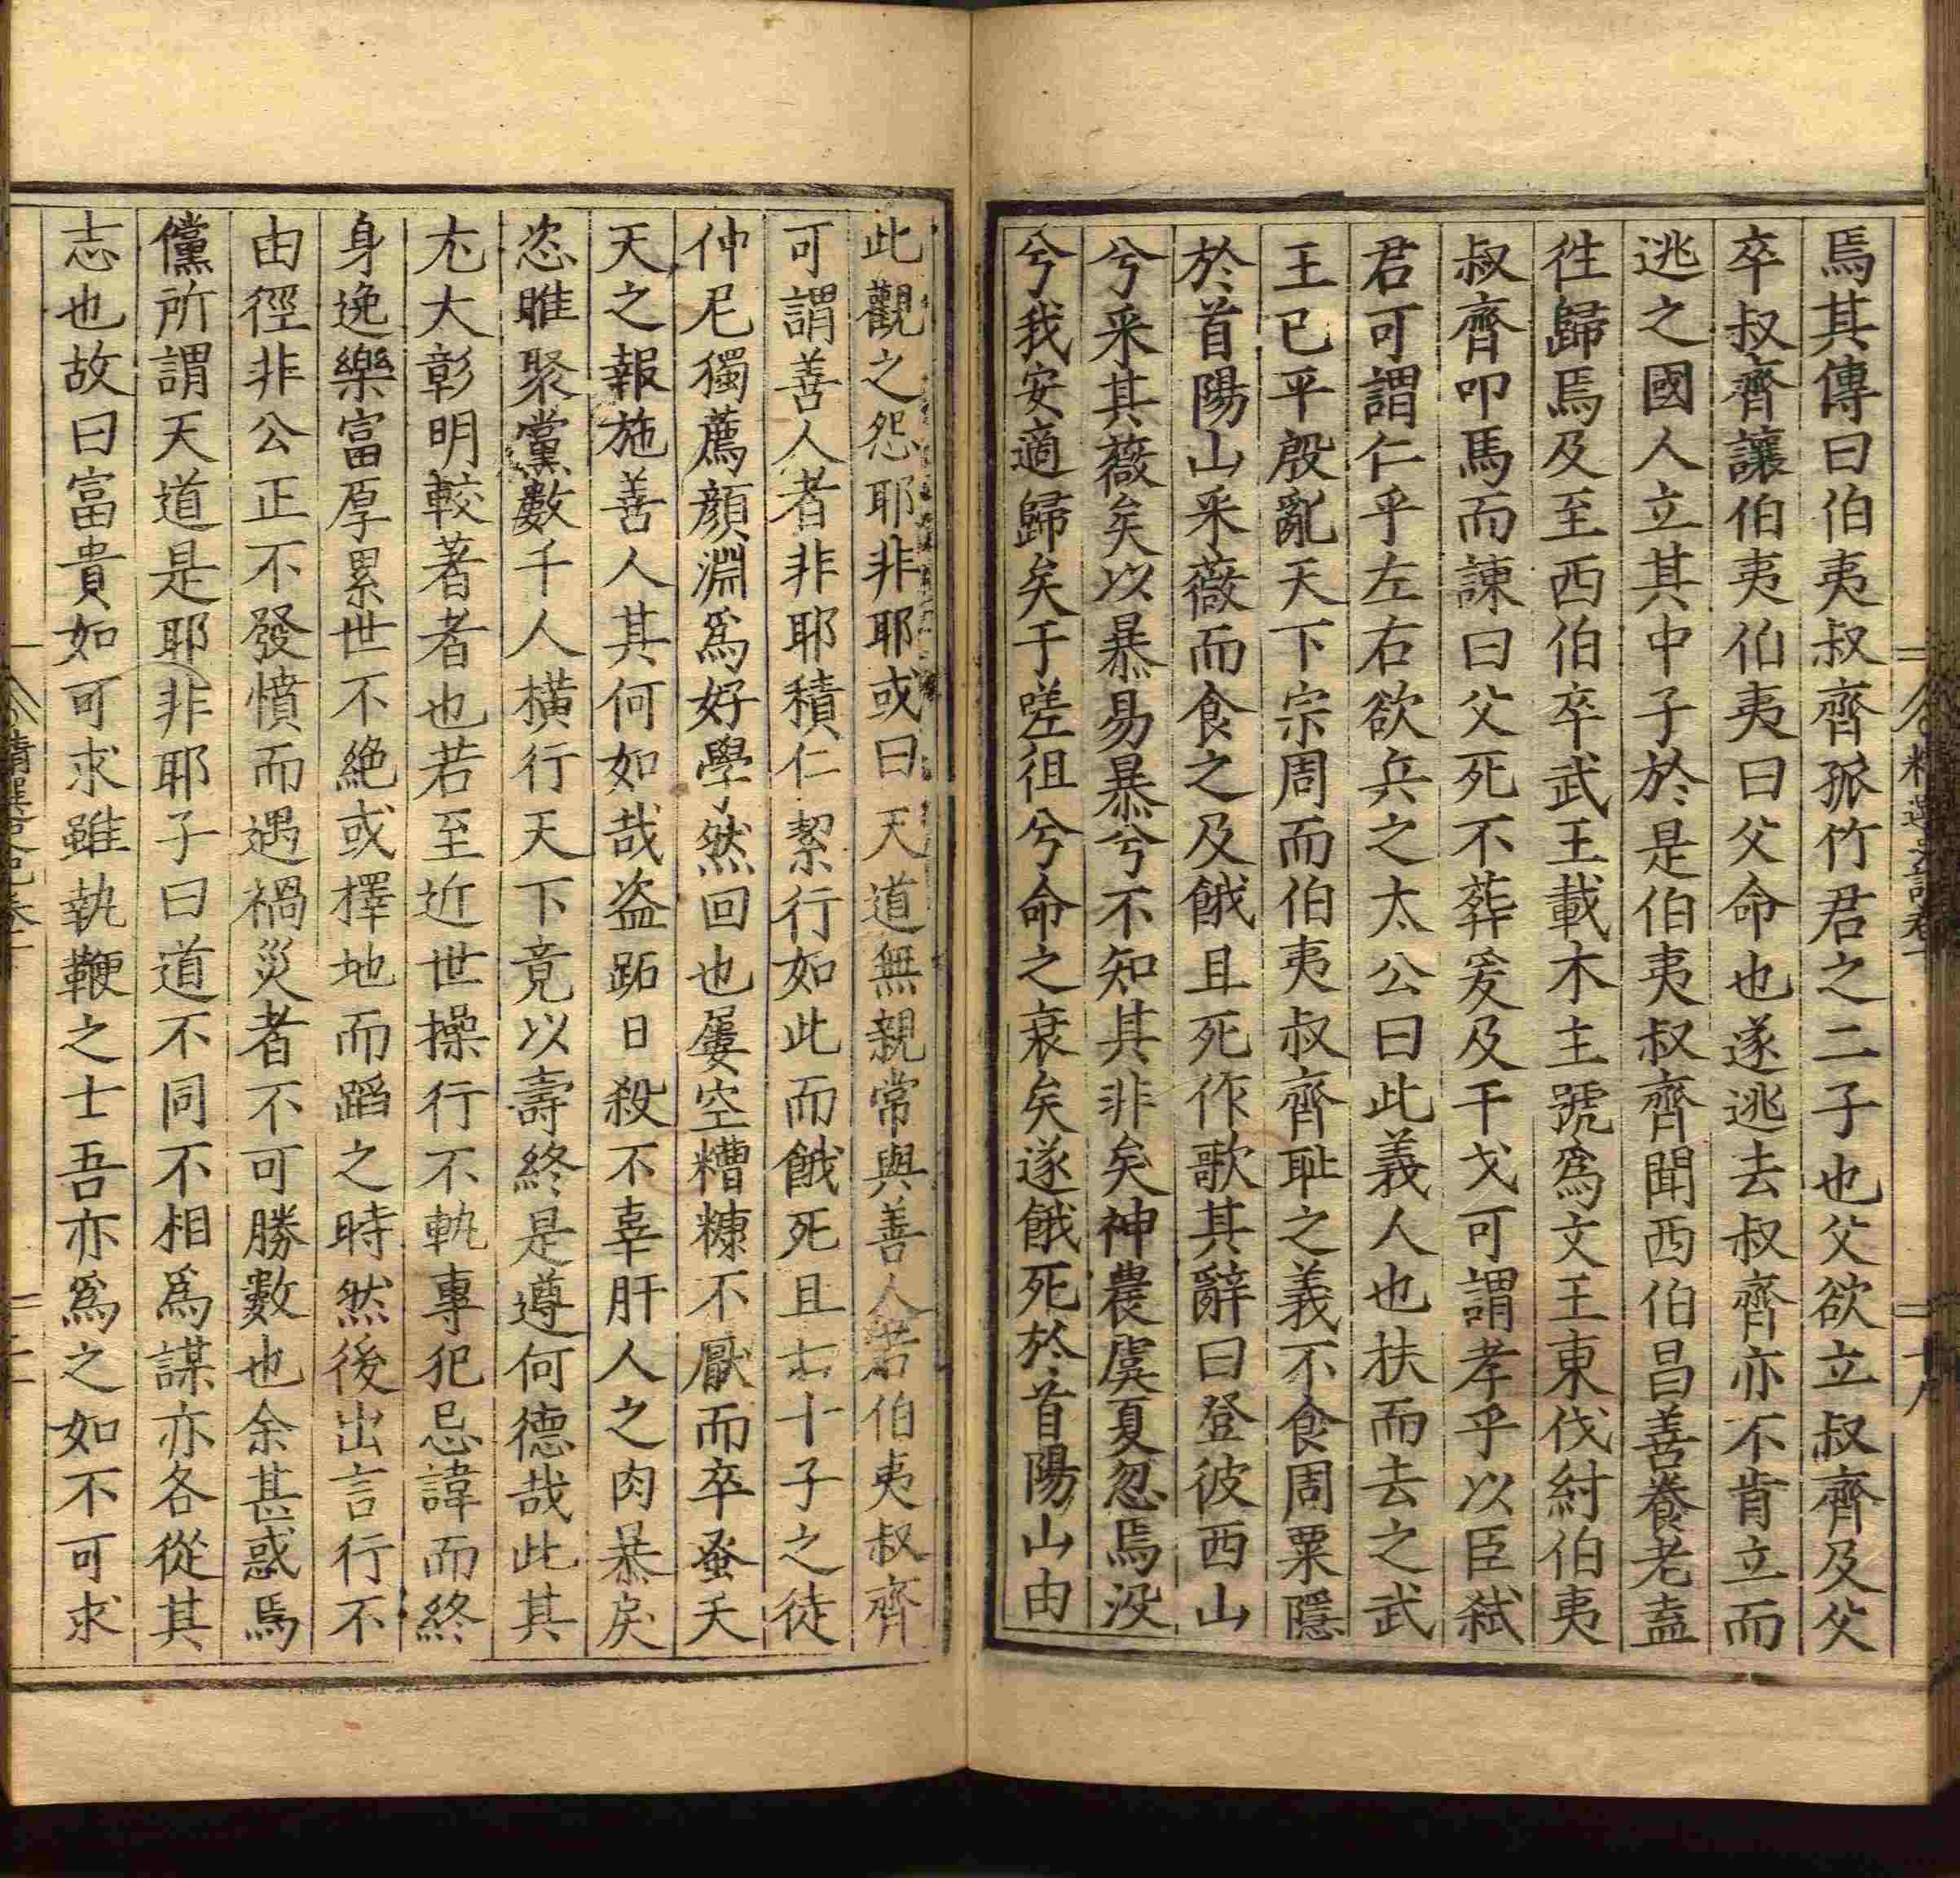 焉其傳曰伯夷叔齊孤竹君之二子也父欲立叔齊及父
卒叔齊讓伯夷伯夷曰父命也遂逃去叔齊亦不肯立而
逃之國人立其中子於是伯夷叔齊聞西伯昌善養老盍
徃歸焉及至西伯卒武王載木主號爲文王東伐紂伯夷
叔齊叩馬而諫曰父死不葬爰及干戈可謂孝乎以臣弑
君可謂仁乎左右欲兵之太公曰此義人也扶而去之武
王已平殷亂天下宗周而伯夷叔齊耻之義不食周粟隱
於首陽山采薇而食之及餓且死作歌其辭曰登彼西山
兮采其薇矣以暴易暴兮不知其非矣神農虞夏忽焉没
兮我安適歸矣于嗟徂兮命之衰矣遂餓死於首陽山由
此觀之怨耶非耶或曰天道無親常與善人若伯夷叔齊
可謂善人者非耶積仁絜行如此而餓死且七十子之徒
仲尼獨薦顏淵爲好學然回也屢空糟糠不厭而卒蚤夭
天之報施善人其何如哉盗跖日殺不辜肝人之肉暴戾
恣睢聚黨數千人橫行天下竟以壽終是遵何德哉此其
尤大彰明較著者也若至近世操行不軌專犯忌諱而終
身逸樂富厚累世不絶或擇地而蹈之時然後出言行不
由徑非公正不發憤而遇禍災者不可勝數也余甚惑焉
儻所謂天道是耶非耶子曰道不同不相爲謀亦各從其
志也故曰富貴如可求雖執鞭之士吾亦爲之如不可求